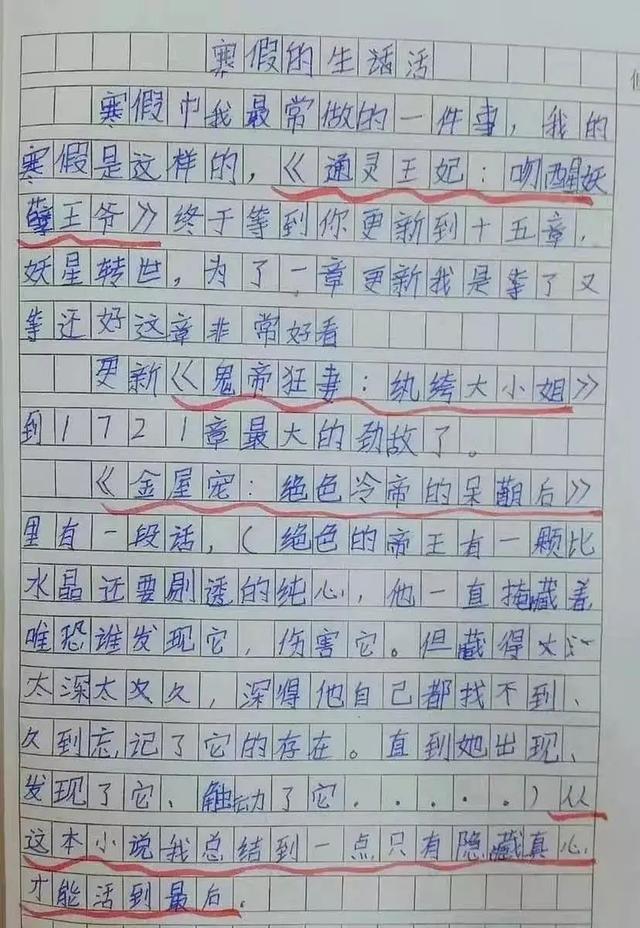 寒假的生活活
寒假中我最常做的一件事，我的
寒假是这样的，《通灵王妃：吻醒妖
孽王爷》终于等到你更新到十五章，
妖星转世，为了一章更新我是等了又
等还好这章非常好看
更新《鬼帝狂妻：纨绔大小姐》
到1721章最大的劲敌了。
《金屋宠：绝色冷帝的呆萌后》
里有一段话，（绝色的帝王有一颗比
水晶还要剔透的纯心，他一直掩藏着
唯恐谁发现它，伤害它。但藏得
太深太久，深得他自己都找不到、
久到忘记了它的存在。直到她出现、
发现了它、触动了它．．．．．）从
这本小说我总结到一点只有隐藏真心
才能活到最后．